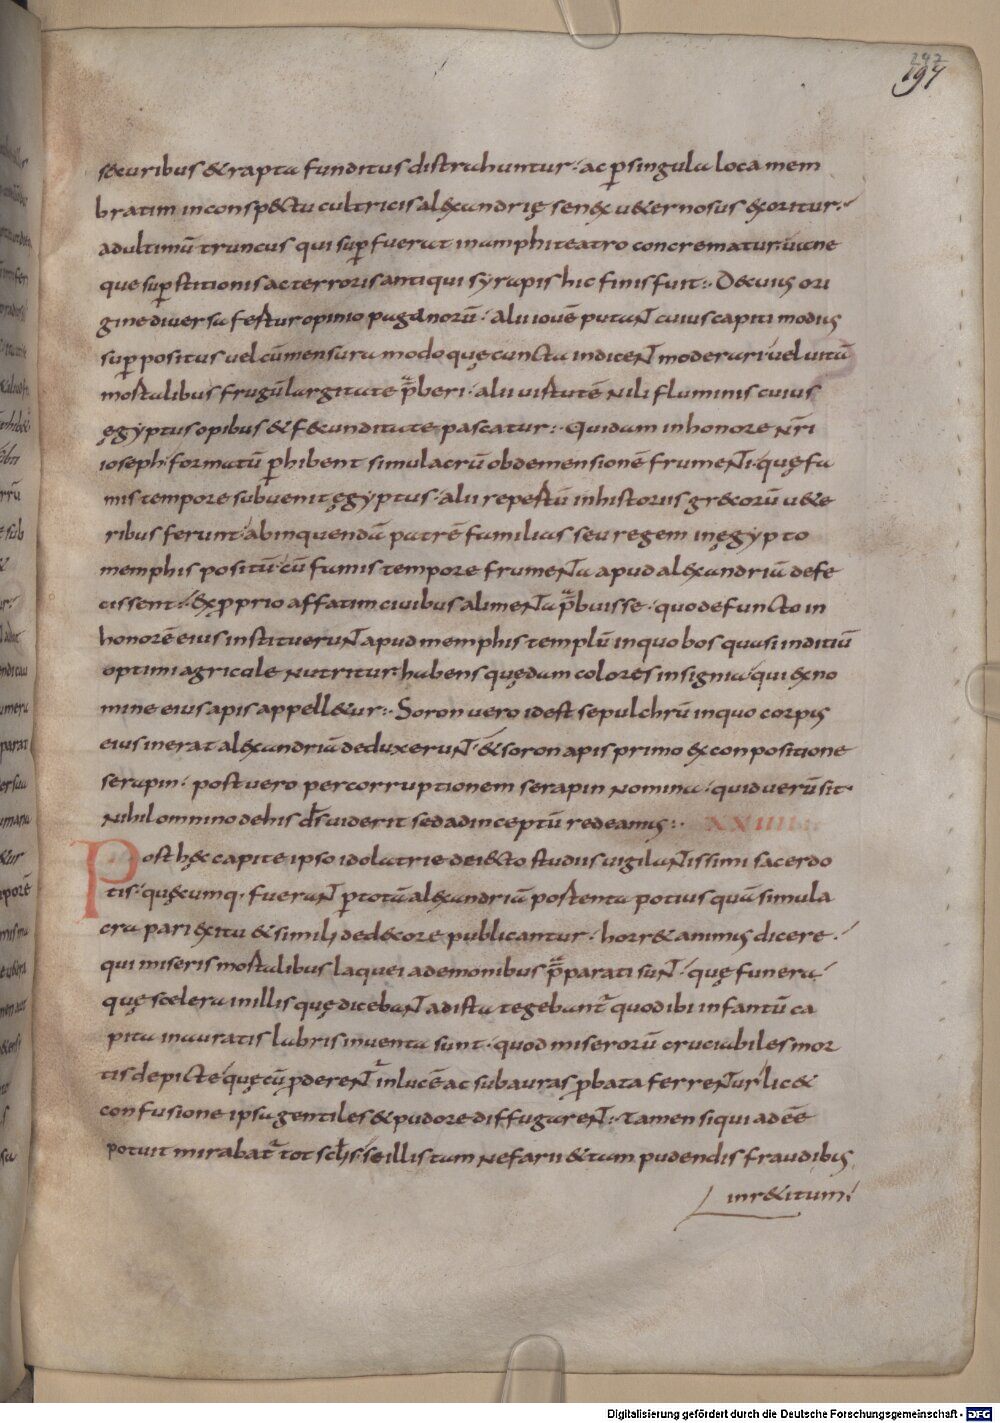 247
197
securibus & rapta funditus distrahuntur· ac p singula loca mem
bratim in consp&tu cultricis alexandrię senex u&ernosus exoritur·
ad ultimū truncus qui sup fuerat in amphiteatro concrematur· uane
que sup stitionis ac terroris antiqui syrapis hic finis fuit:· De cuius ori
gine diuersa fertur opinio paganorū· alii iouē putant cuius capiti modius
sup positus uel cū mensura modo quę cuncta indicent moderari· uel uitā
mortalibus frugū largitate p̄beri· alii uirtutē nili fluminis cuius
ęgyptus opibus & fecunditate pascatur:· Quidam in honore nr̄i
ioseph formatū phibent simulacrū ob demensionē frumenti· quę fa
mis tempore subuenit ęgyptus· alii repertū in historiis grecorū u&e
ribus ferunt· abin quendā patrē familias seu regem in ęgypto
memphis positū· cū famis tempore frumenta apud alexandriā defe
cissent· ex pprio affatim ciuibus alimenta p̄buisse· quo defuncto in
honorē eius instituerunt apud memphis templū in quo bos quasi inditiū
optimi agricole nutritur· habens quędam colores insignia· qui ex no
mine eius apis appell&ur:· Soron uero id est sepulchrū in quo corpus
eius inerat alexandriā deduxerunt· & soron apis primo ex conpositione
serapin· post uero per corruptionem serapin nomina· quid uerū sit·
nihil omnino de his d̄s uiderit sed ad inceptū redeamus:· XXIIII
Post hęc capite ipso idolatrie deiecto studiis uigilantissimi sacerdo
tis· quęcumq· fuerant p totū alexandriā portenta potius quā simula
cra pari exitu & simili dedecore publicantur· horr& animus dicere·
qui miseris mortalibus laquei a demonibus p̄parati sunt· quę funera·
quę scelera in illis quę dicebant adista tegebant̄ quod ibi infantū ca
pita inauratis labris inuenta sunt· quod miserorū cruciabiles mor
tis depicte· quę cū pderent̄ in lucē ac sub auras pbata ferrentur· lic&
confusione ipsa gentiles & pudore diffugarent:· tamen siqui adēe
potuit mirabat̄ tot scl̄is· se illis tam nefarii & tam pudendis fraudibus
inr&itum·
Digitalisierung gefördert durch die Deutsche Forschungsgemeinschaft - DFG